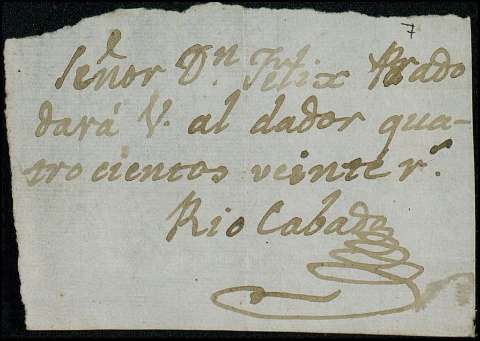 7
Señor Dn. Felix Prado
dará V. al dador qua-
trocientos veinte rs.
Rio Cabado